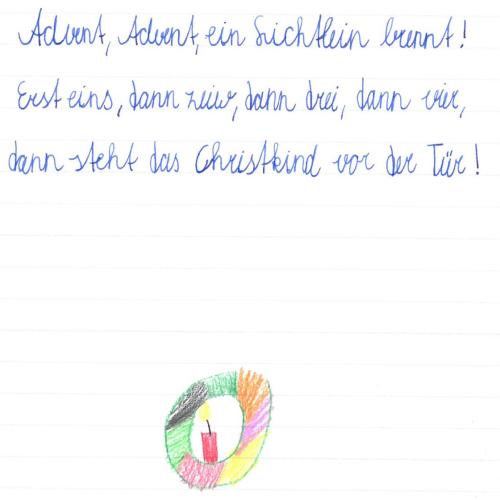 Advent, Advent, ein Lichtlein brennt!
Erst eins, dann zwei, dann drei, dann vier,
dann steht das Christkind vor der Tür!